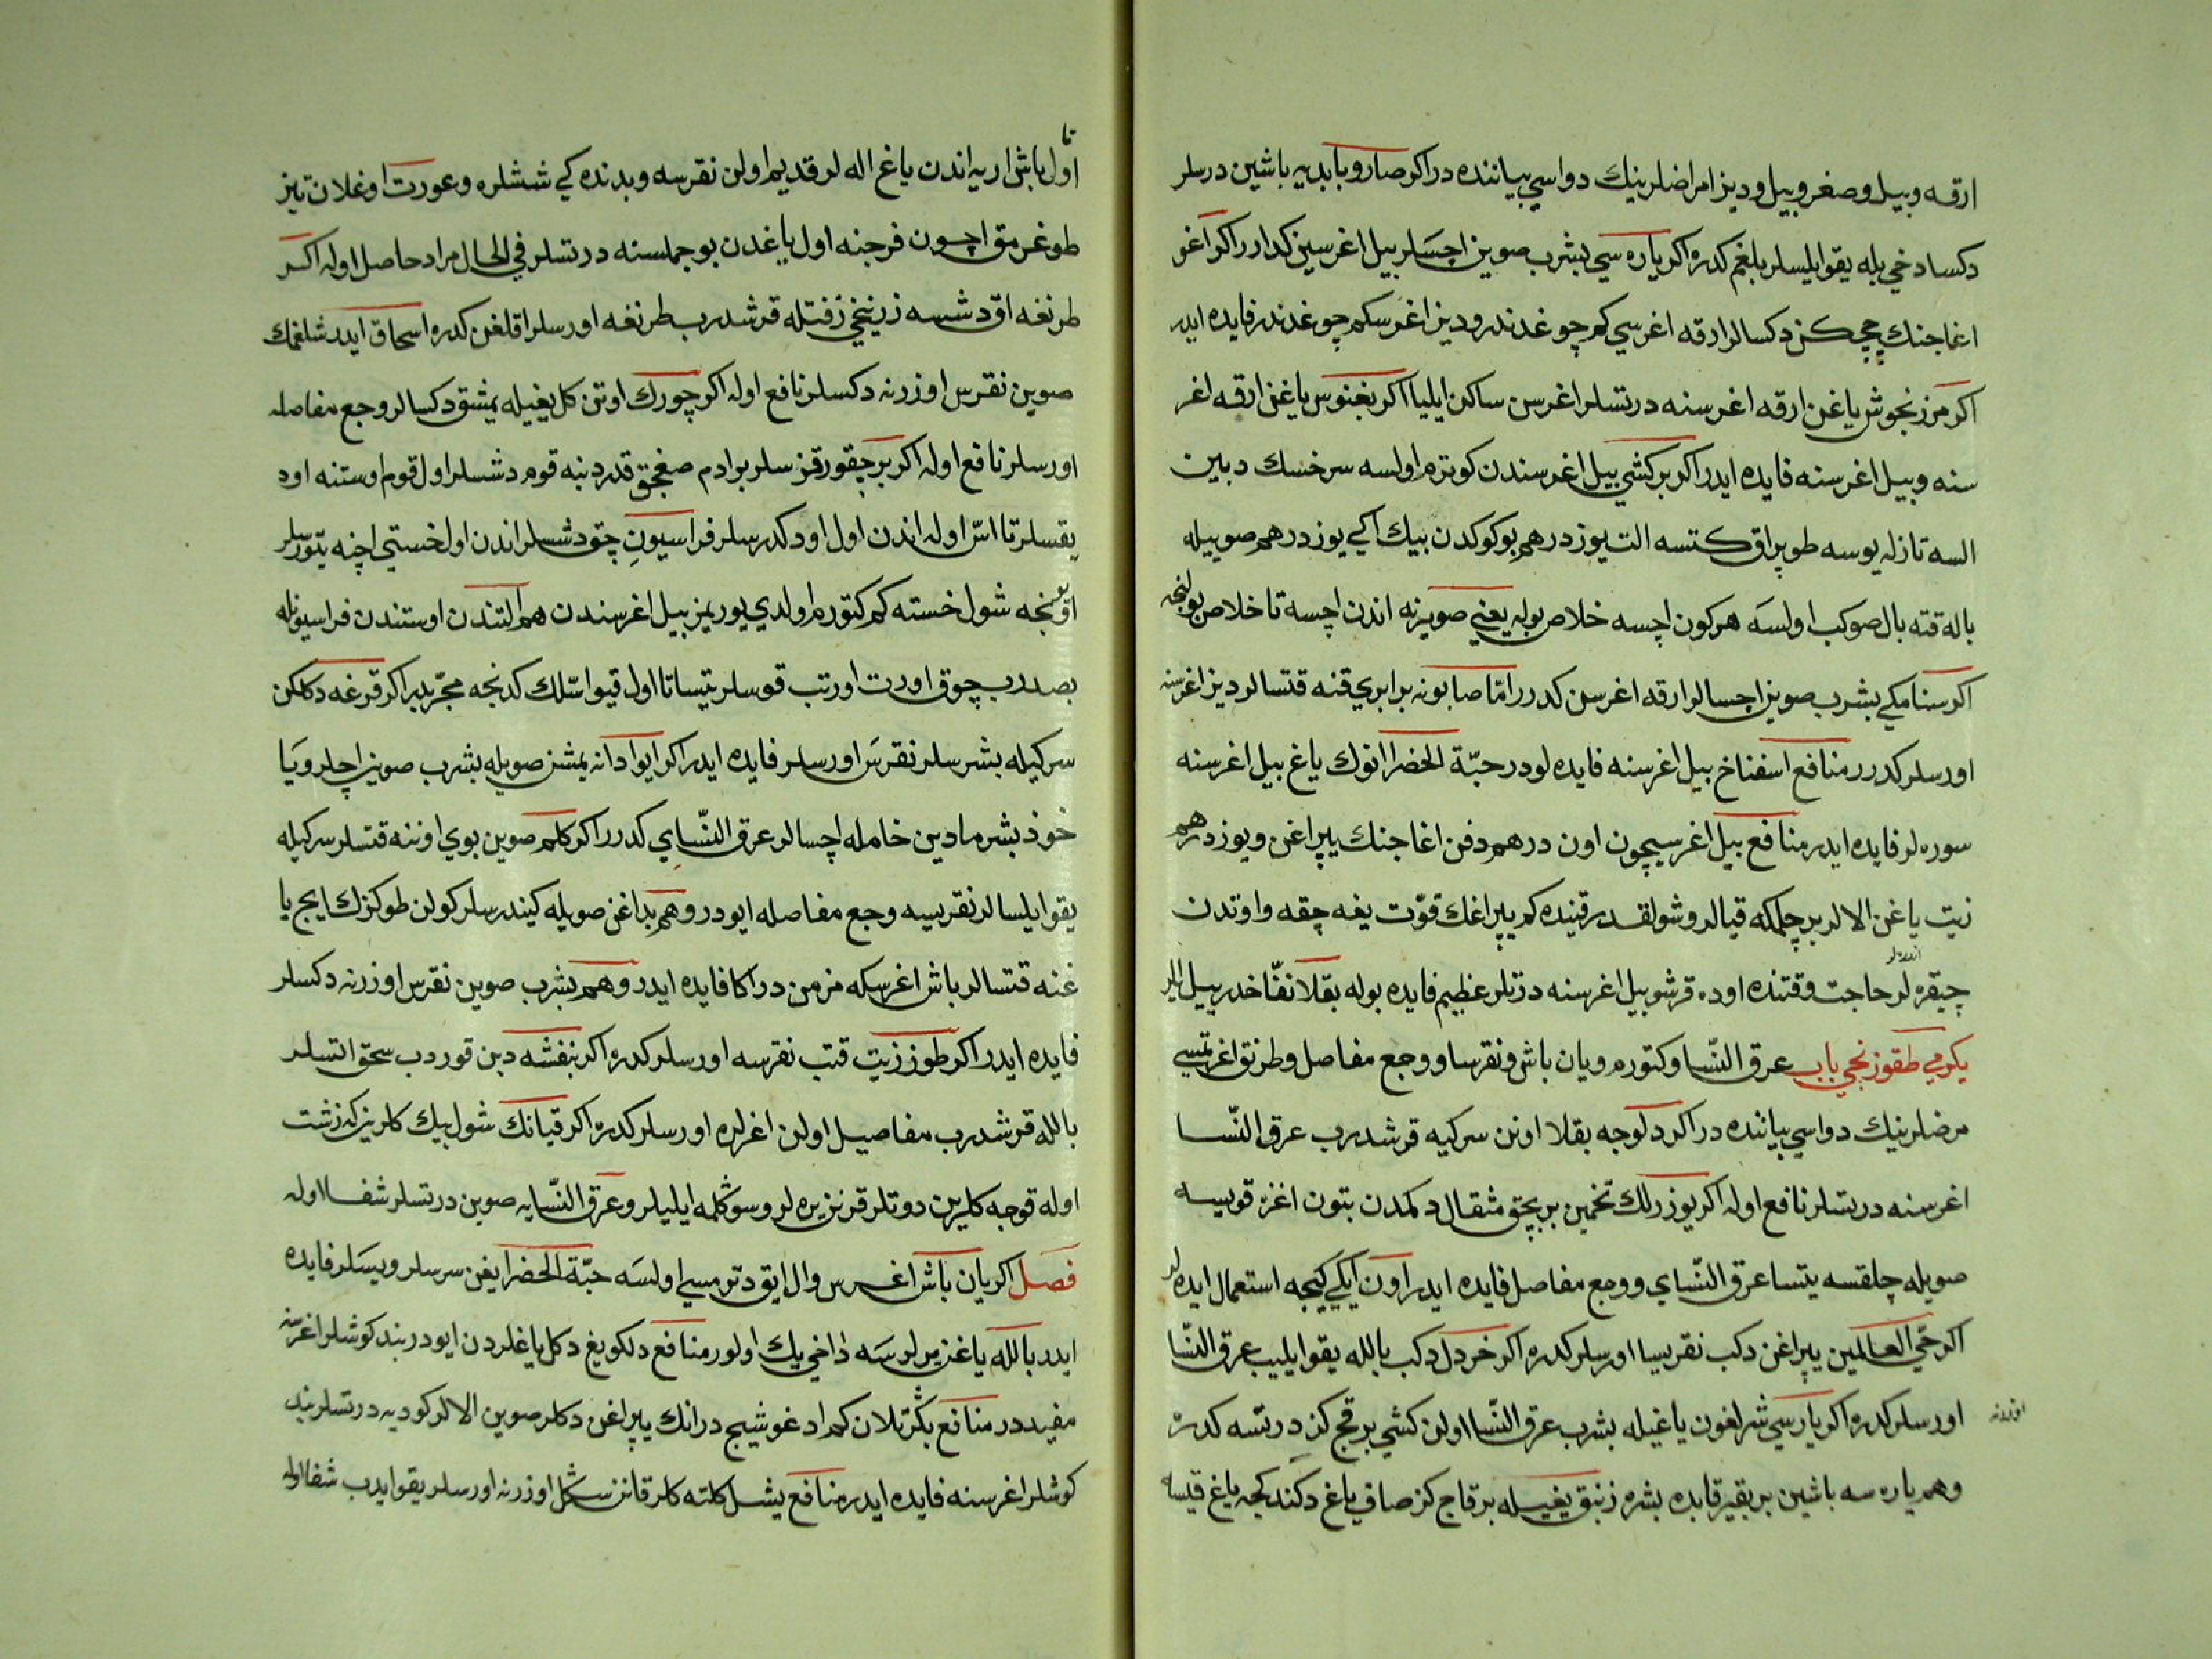 ارقه وبيل وصغرو بيل وديز امراضلرينك دواسي بيانندە در اكر صارو بابديه باشين درسلر
دكسا دخي بله يقو ايلسلر بلغم كدرە اكر يارە سي بشرب صوين اچسَلر بيل اغرسين كدارر اكر اغو
اغاجنك چچكن دكسالر ارقه اغرسي كم چوغدندر وديز اغرسكم چوغدندر فايدە ايدر
اكر مرزنجوش ياغن ارقه اغرسنه درتسلر اغرسن ساكن ايليا اكر بغنوس ياغن ارقه اغر
سنه وبيل اغرسنه فايدە ايدر اكر بر كشي بيل اغرسندن كوترم اولسه سرخسك دبين
السه تازله يوسه طوپراق كتسه الت يوز درهم بو كوكدن بيك اكي يوز درهم صوييله
باله قته بال صو كب اولسَه هركون اچسه خلاص بوله يعني صويرنه اندن اچسه تا خلاص بولنجه
اكر سنامكي بشرب صوين اچسالر ارقه اغرسن كدرر امّا صابونه برابري قنه قتسالر ديز اغرسنه
اورسلر كدرر منافع اسفناخ بيل اغرسنه فايدە لودر حبّة الخضرا انوك ياغ بيل اغرسنه
سورە لر فايدە ايدر منافع بيل اغرسيچون اون درهم دفن اغاجنك يپراغن ويوز درهم
زيت ياغن الالر بر چلمكه قيالر وشولقدر قيندە كم يپراغك قوّت يغه چقه واوتدن
چيقرە لر حاجت وقتندە اودە قرشو بيل اغرسنه درتلر عظيم فايدە بوله بقلا نفّاخدر بيل
اندرلر
يكرمي طقوزنجي باب عرق النّسا وكتورم ويان باش ونقرسا ووجع مفاصل وطرنق اغرتمسي
مرضلرينك دواسي بيانندە در اكر دلوجه بقلا اونن سركيه قرشدرب عرق النّسا
اغرسنه درتسلر نافع اوله اكر يوزرلك تخمين بر بچق مثقال دكمدن بتون اغزە قويسه
صويله چلقسه يتسا عرق النّساي ووجع مفاصل فايدە ايدر اون ايكي كيجه استعمال ايدە لر
اكر حيّ العالمين يپراغن دكب نقريسا اورسلر كدرە اكر خردل دكب بالله يقو ايليب عرق النّسا
اورسلر كدرە اكر يارسي شرلغون ياغيله بشرب عرق النّسا اولن كشي بر قچ كز درتسه كدرە
اوزرنه
وهم يارە سه باشين بر بقير قابدە بشرە زنبق يغيله بر قاچ كز صافي ياغ دكندكچه ياغ قيسه
اوّل باش اريه اندن ياغ اله لر قديم اولن نقرسه وبدندە كي ششلرە وعورت اوغلان تيز
تا
طوغرمق اچون فرجنه اول ياغدن بو جملسنه درتسلر في الحال مراد حاصل اوله اكر
طرنغه اق دشسه زرنيخي زفتله قرشدرب طرنغه اورسلر اقلغن كدرە اسحاق ايدر شلغمك
صوين نقرس اوزرنه دكسلر نافع اوله اكر چورك اوتن كل يغيله يمشق دكسالر وجع مفاصله
اورسلر نافع اوله اكر بر چقور قزسلر بر ادم صغجق قدر دبنه قوم دشسلر اول قوم اوستنه اود
يقسلر تا اسّ اوله اندن اول اود كدرسلر فراسيون چق دشسلر اندن اول خستي اچنه يتورسلر
شول خسته كم كتورم اولدي يوريمز بيل اغرسندن هم التندن اوستندن فراسيونله
بصدرب چوق اورت اورتب قوسلر يتسا تا اول قيو اسّلك كدنجه مجرّبدر اكر قرغه دكلكن
سركيله بشرسلر نقرسَ اورسلر فايدە ايدر اكر ايوادانه يمشن صويله بشرب صوين اچلر ويَا
خوذ بشرمادين خامله اچسالر عرق النّساي كدرر اكر كلم صوين بوي اوننه قتسلر سركيله
يقو ايلسالر نقريسه وجع مفاصله ايودر وهم بداغن صويله كيندرسلر كولن طوكزك ايچ يا
غنه قتسالر باش اغرسكه مزمن در اكا فايدە ايدر وهم بشرب صوين نقرس اوزرنه دكسلر
فايدە ايدر اكر طوز زيت قتب نقرسه اورسلر كدرە اكر بنفشه دبن قوردب سحق اتسلر
بالله قرشدرب مفاصيل اولن اغرلرە اورسلر كدرە اكر قپانك شول بيك كلرين كه زشت
اوله قوجه كلرين دوتلر قرنزيرە لر وسوكلمه ايليلر وعرق النّسايه صوين درتسلر شفا اوله
فصل اكر يان باش اغرس وال ايق دترمسي اولسَه حبّة الخضرا يغن سرسلر ويسَلر فايدە
ايدر بالله ياغن يرلرسَه داخي يك اولور منافع دلكو يغ دكل ياغلردن ايودر بند كوشلر اغرسنه
مفيددر منافع بكرتلان كم ادغو شيچ در انك يپراغن دكلر صوين الالر كوديه درتسلر بند
كوشلر اغرسنه فايدە ايدر منافع يشل كلته كلر قانن سكل اوزرنه اورسلر يقو ايدب شفا اوله